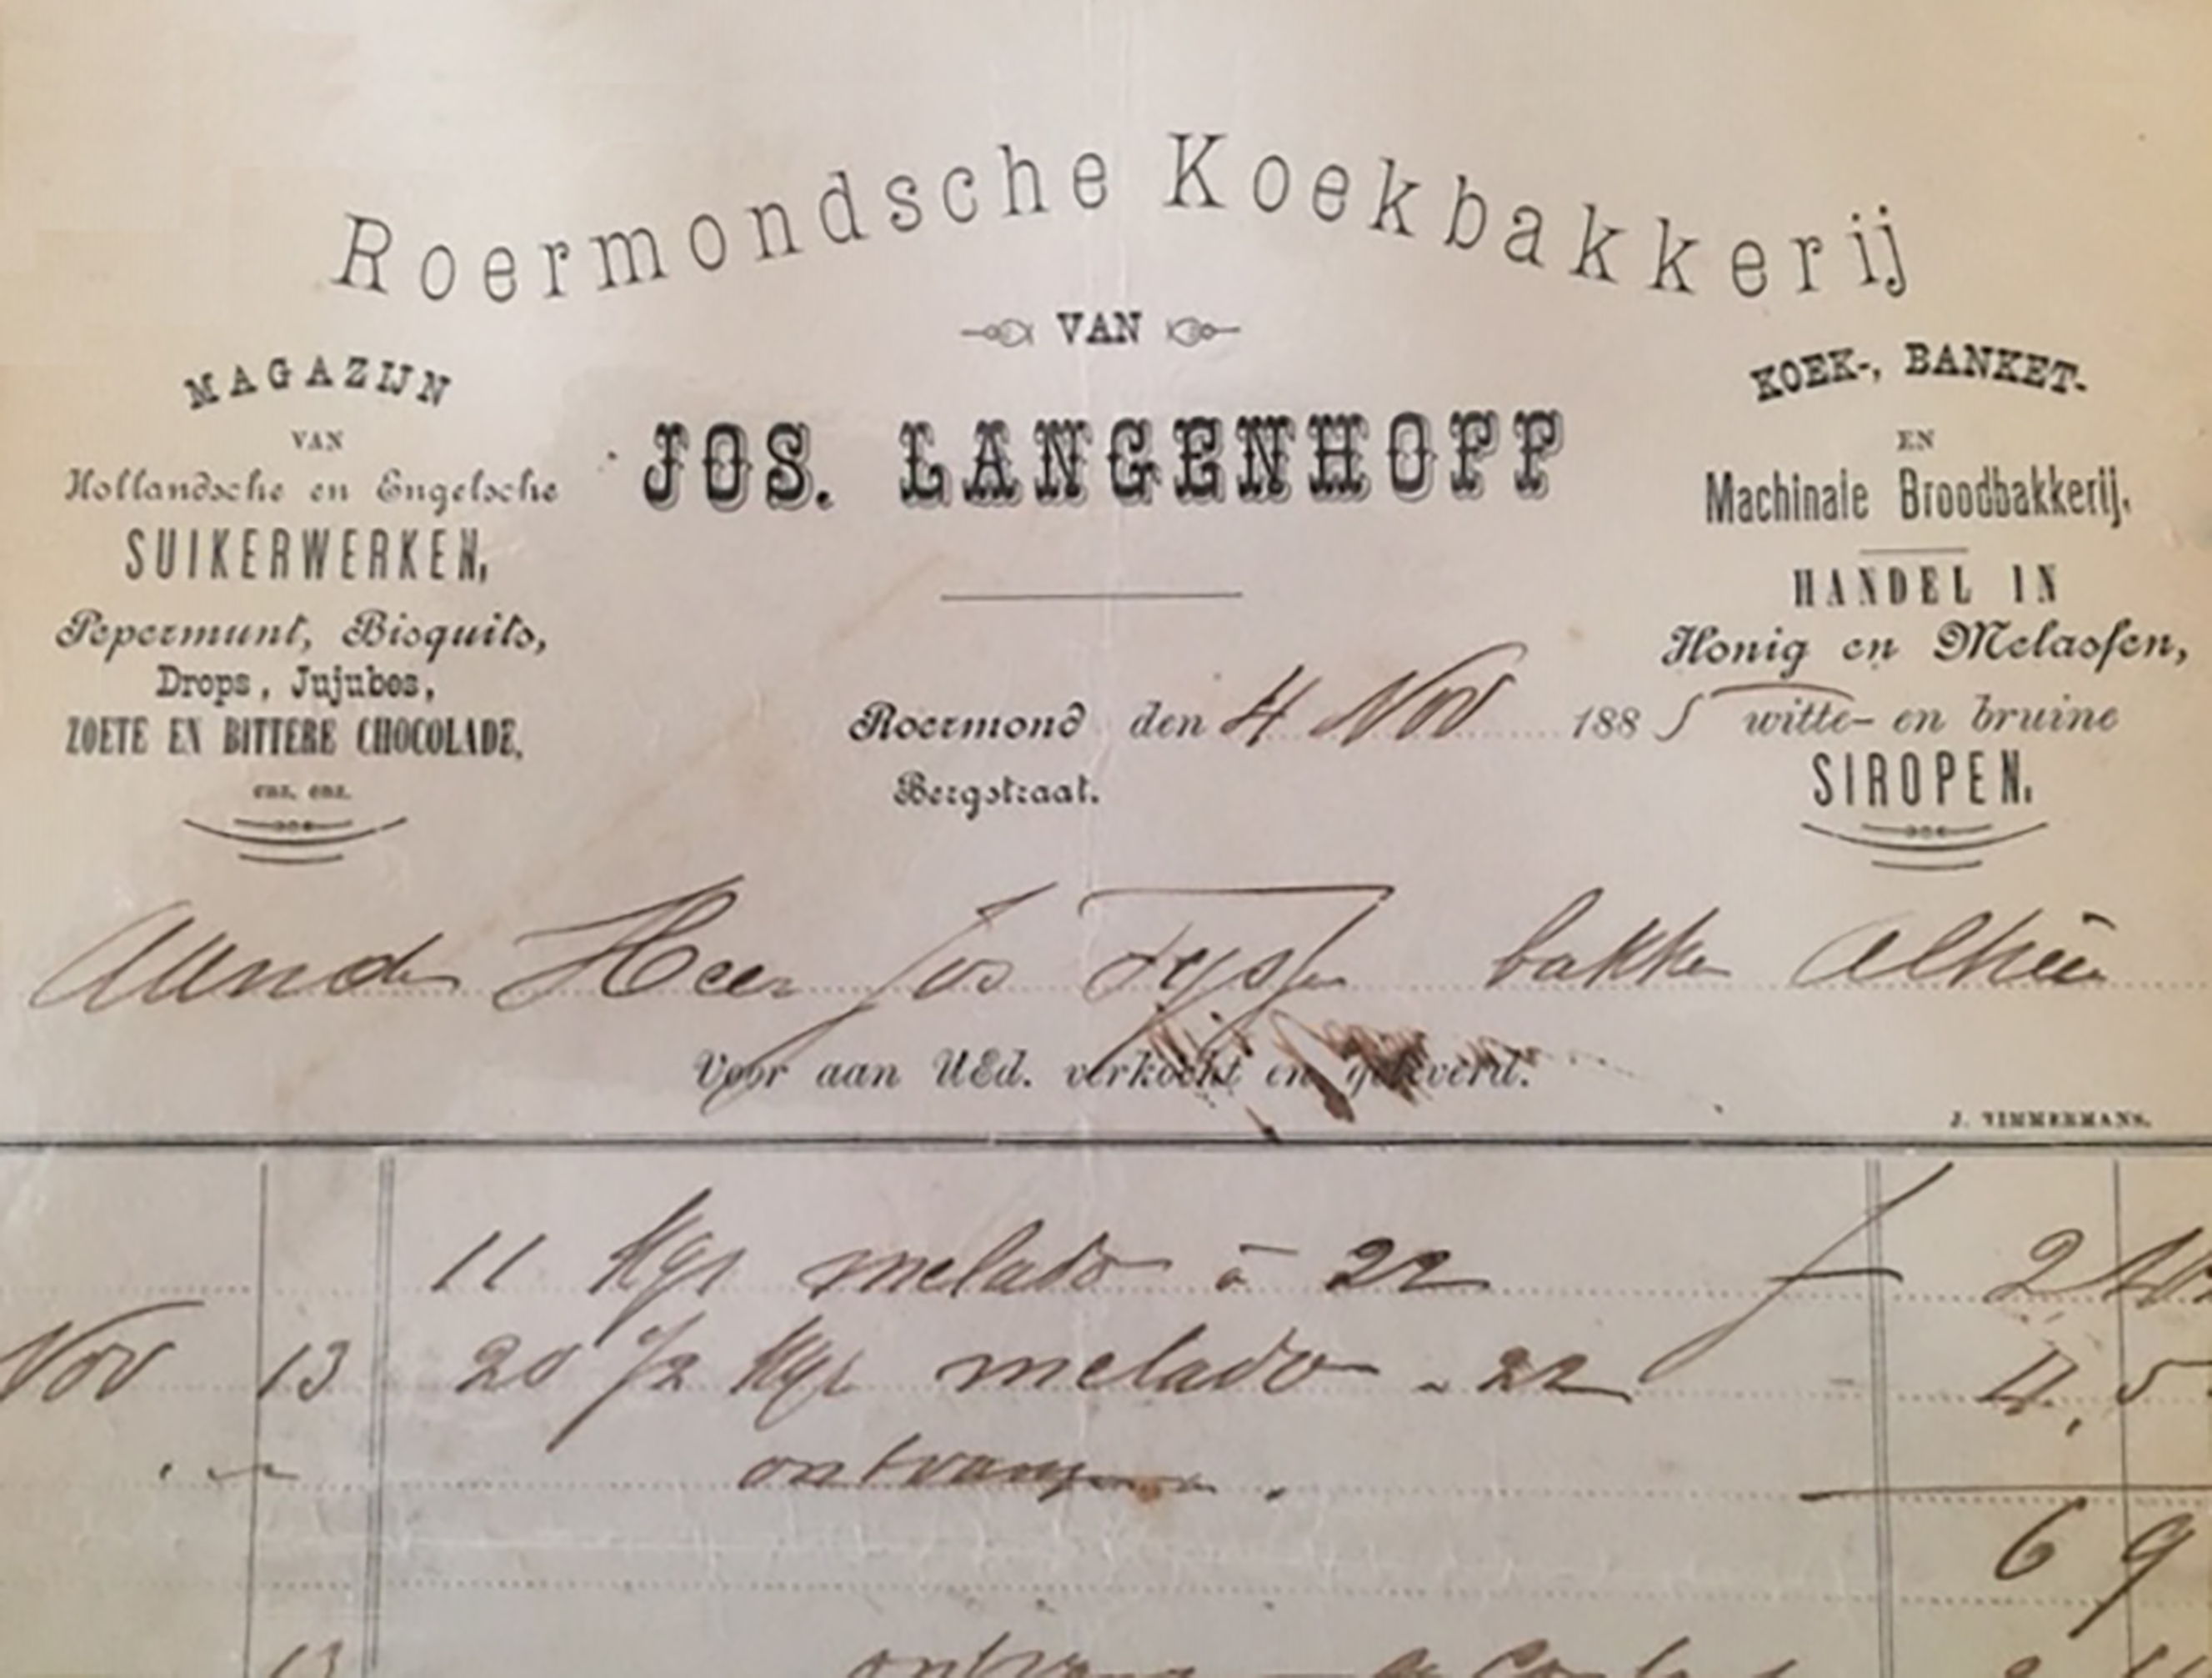 Roermondsche Koekbakkerij
VAN
JOS. LANGENHOFF
MAGAZIJN
VAN
Hollandsche en Engelsche
SUIKERWERKEN,
Pepermunt, Bisquits,
Drops, Jujubes,
ZOETE EN BITTERE CHOCOLADE,
enz. enz.
KOEK-, BANKET-
EN
Machinale Broodbakkerij.
HANDEL IN
Honig en Melassen,
witte- en bruine
SIROPEN.
Roermond den 4 Nov 1885
Bergstraat.
Aan de Heer Jos Tyssen bakker Alhier
Voor aan UEd. verkocht en geleverd.
J. TIMMERMANS.
11 Kgr melado à 22 f 2
Nov 13 20 1/2 Kgr melado " 22 4,5
ontvangen.
6 9
13